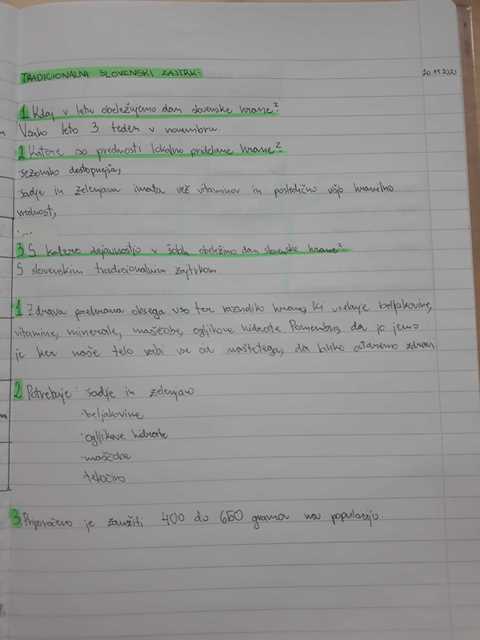 TRADICIONALNI SLOVENSKI ZAJTRK: 20.11.2020
1 Kdaj v letu obeležujemo dan slovenske hrane?
Vsako leto 3 teden v novembru
2 Katere so prednosti lokalno pridelane hrane?
sezonsko dostopnejša,
sadje in zelenjava imata več vitaminov in posledično višjo hranilno
vrednost,
....
3 S katero dejavnostjo v šoli obeležimo dan slovenske hrane?
S slovenskim tradicionalnim zajtrkom
1 Zdrava prehrana obsega vso ter raznoliko hrano, ki vsebuje beljakovine,
vitamine, minerale, maščobe, ogljikove hidrate. Pomembno, da jo jemo
je ker naše telo rabi vse od naštetega, da lahko ostanemo zdravi
2 Potrebuje: sadje in zelenjavo
· beljakovine
· ogljikove hidrate
· maščobe
tekočino
3 Priporočeno je zaužiti 400 do 650 gramov na populacijo.